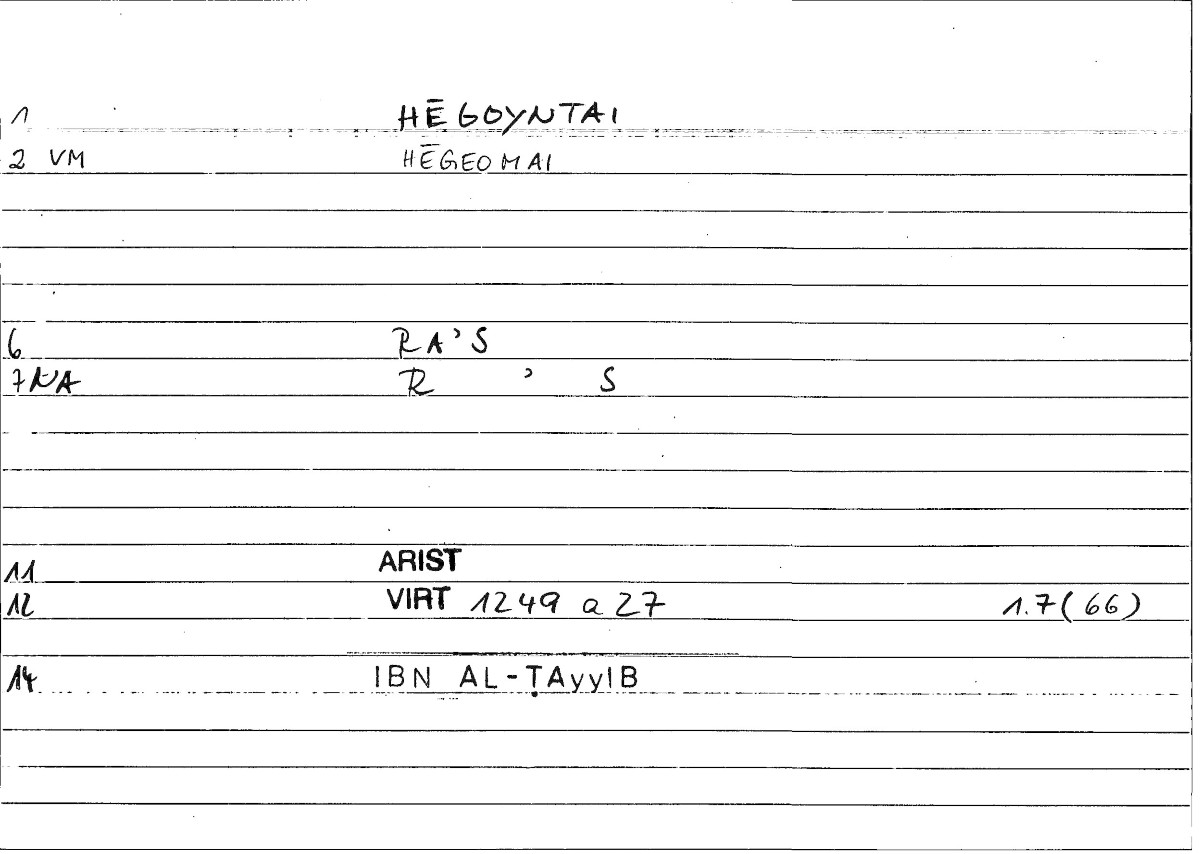 1 HĒGOYNTAI
2 VM HĒGEOMAI
6 RA’S
7NA R ’ S
11 ARIST
12 VIRT 1249 a 27 1.7(66)
14 IBN AL-ṬAyyIB